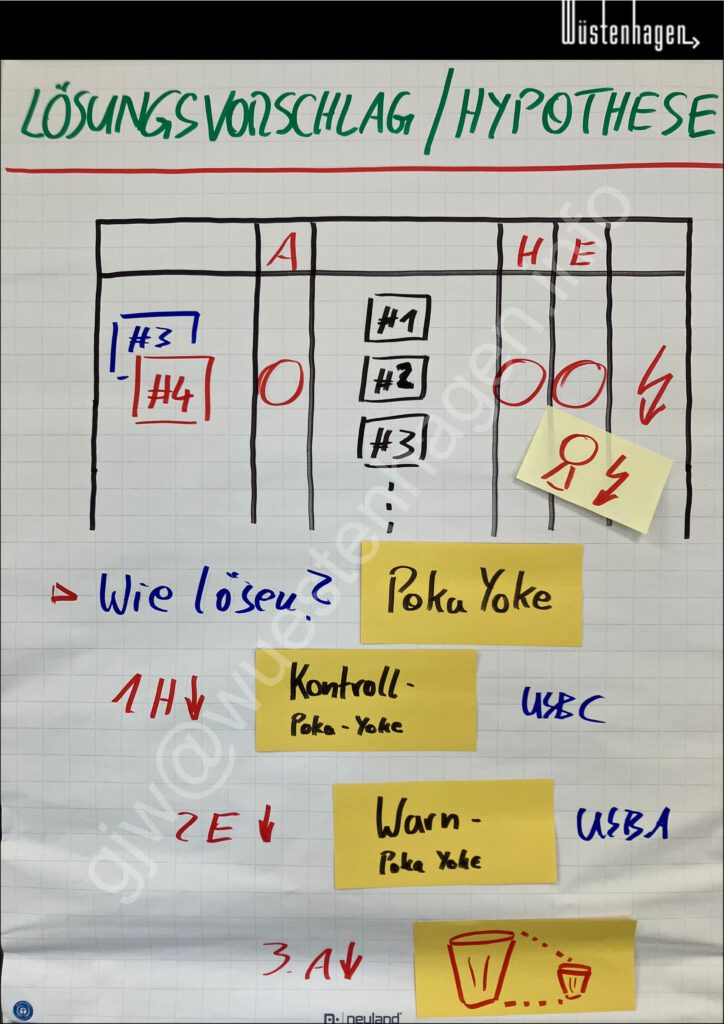 Wüstenhagen
LÖSUNGSVORSCHLAG / HYPOTHESE
A H E
#3
#4
#1
#2
#3
Wie lösen? Poka Yoke
1 H Kontroll-
Poka-Yoke
USBC
2 E Warn-
Poka Yoke
USBA
3. A
neuland
gjw@wuestenhagen.info